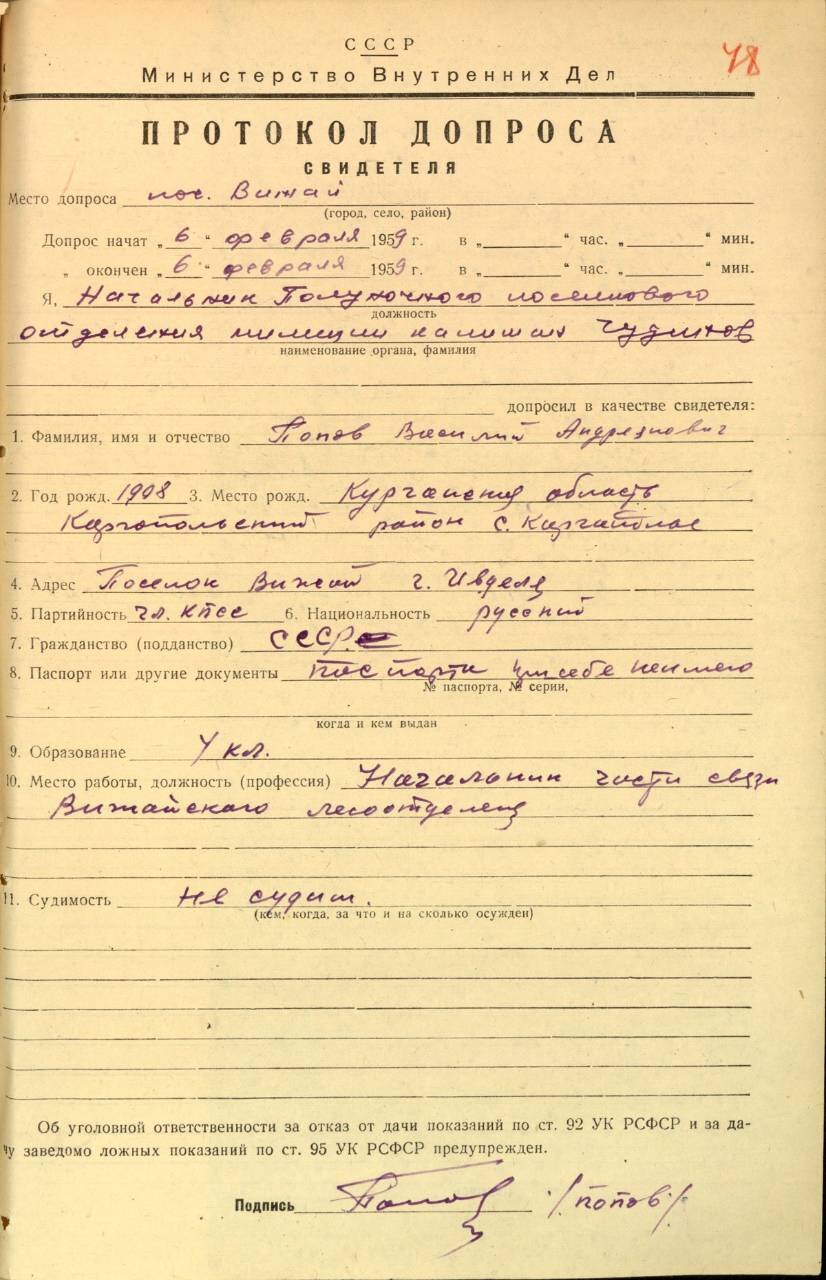 СССР
Министерство Внутренних Дел
48
ПРОТОКОЛ ДОПРОСА
СВИДЕТЕЛЯ
Место допроса пос. Вижай
(город, село, район)
Допрос начат „ 6 “ февраля 1959 г. в „ “ час. „ “ мин.
„ окончен „ 6 “ февраля 1959 г. в „ “ час. „ “ мин.
Я, Начальник Полуночного поселкового
должность
отделения милиции капитан Чудинов
наименование органа, фамилия
допросил в качестве свидетеля:
1. Фамилия, имя и отчество Попов Василий Андреянович
2. Год рожд. 1908 3. Место рожд. Курганская область
Каргопольский район с.
4. Адрес Поселок Вижай г. Ивделя
5. Партийность чл. КПСС 6. Национальность русский
7. Гражданство (подданство) СССР
8. Паспорт или другие документы поспорта при себе неимею
№ паспорта, № серии,
когда и кем выдан
9. Образование 7 кл.
10. Место работы, должность (профессия) Начальник части связи
Вижайского лесоотделения
11. Судимость не судим.
(кем, когда, за что и на сколько осужден)
Об уголовной ответственности за отказ от дачи показаний по ст. 92 УК РСФСР и за да-
чу заведомо ложных показаний по ст. 95 УК РСФСР предупрежден.
Подпись Попов /попов/